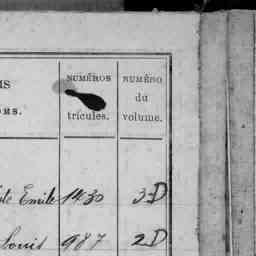 MS
OMS.
NUMÉROS
tricules.
NUMÉRO
du
volume.
Emile 1430 3D
Louis 987 2D